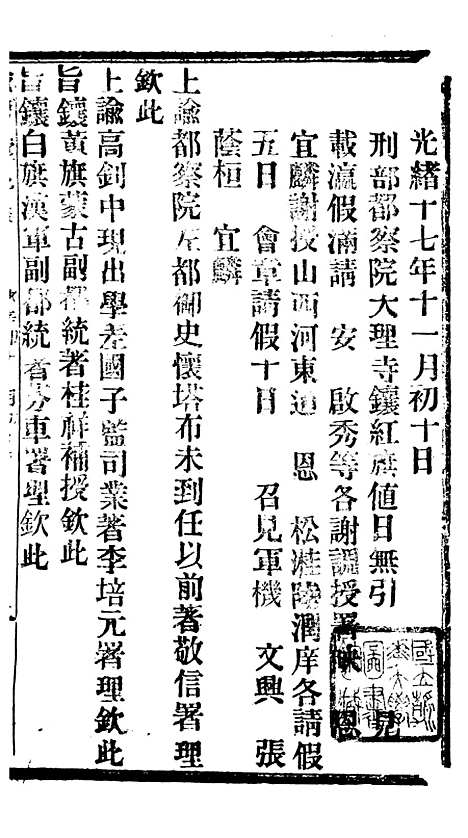 光緒十七年十一月初十日
刑部都察院大理寺鑲紅旗值日無引 見
載瀛假滿請 安 啟秀等各謝調授署缺 恩
宜麟謝授山西河東道 恩 松溎陸潤庠各請假
五日 會章請假十日 召見軍機 文興 張
蔭桓 宜麟
上諭都察院左都御史懷塔布未到任以前著敬信署理
欽此
上諭高釗中現出學差國子監司業著李培元署理欽此
旨鑲黃旗蒙古副都統著桂祥補授欽此
旨鑲白旗漢軍副都統著芬車署理欽此